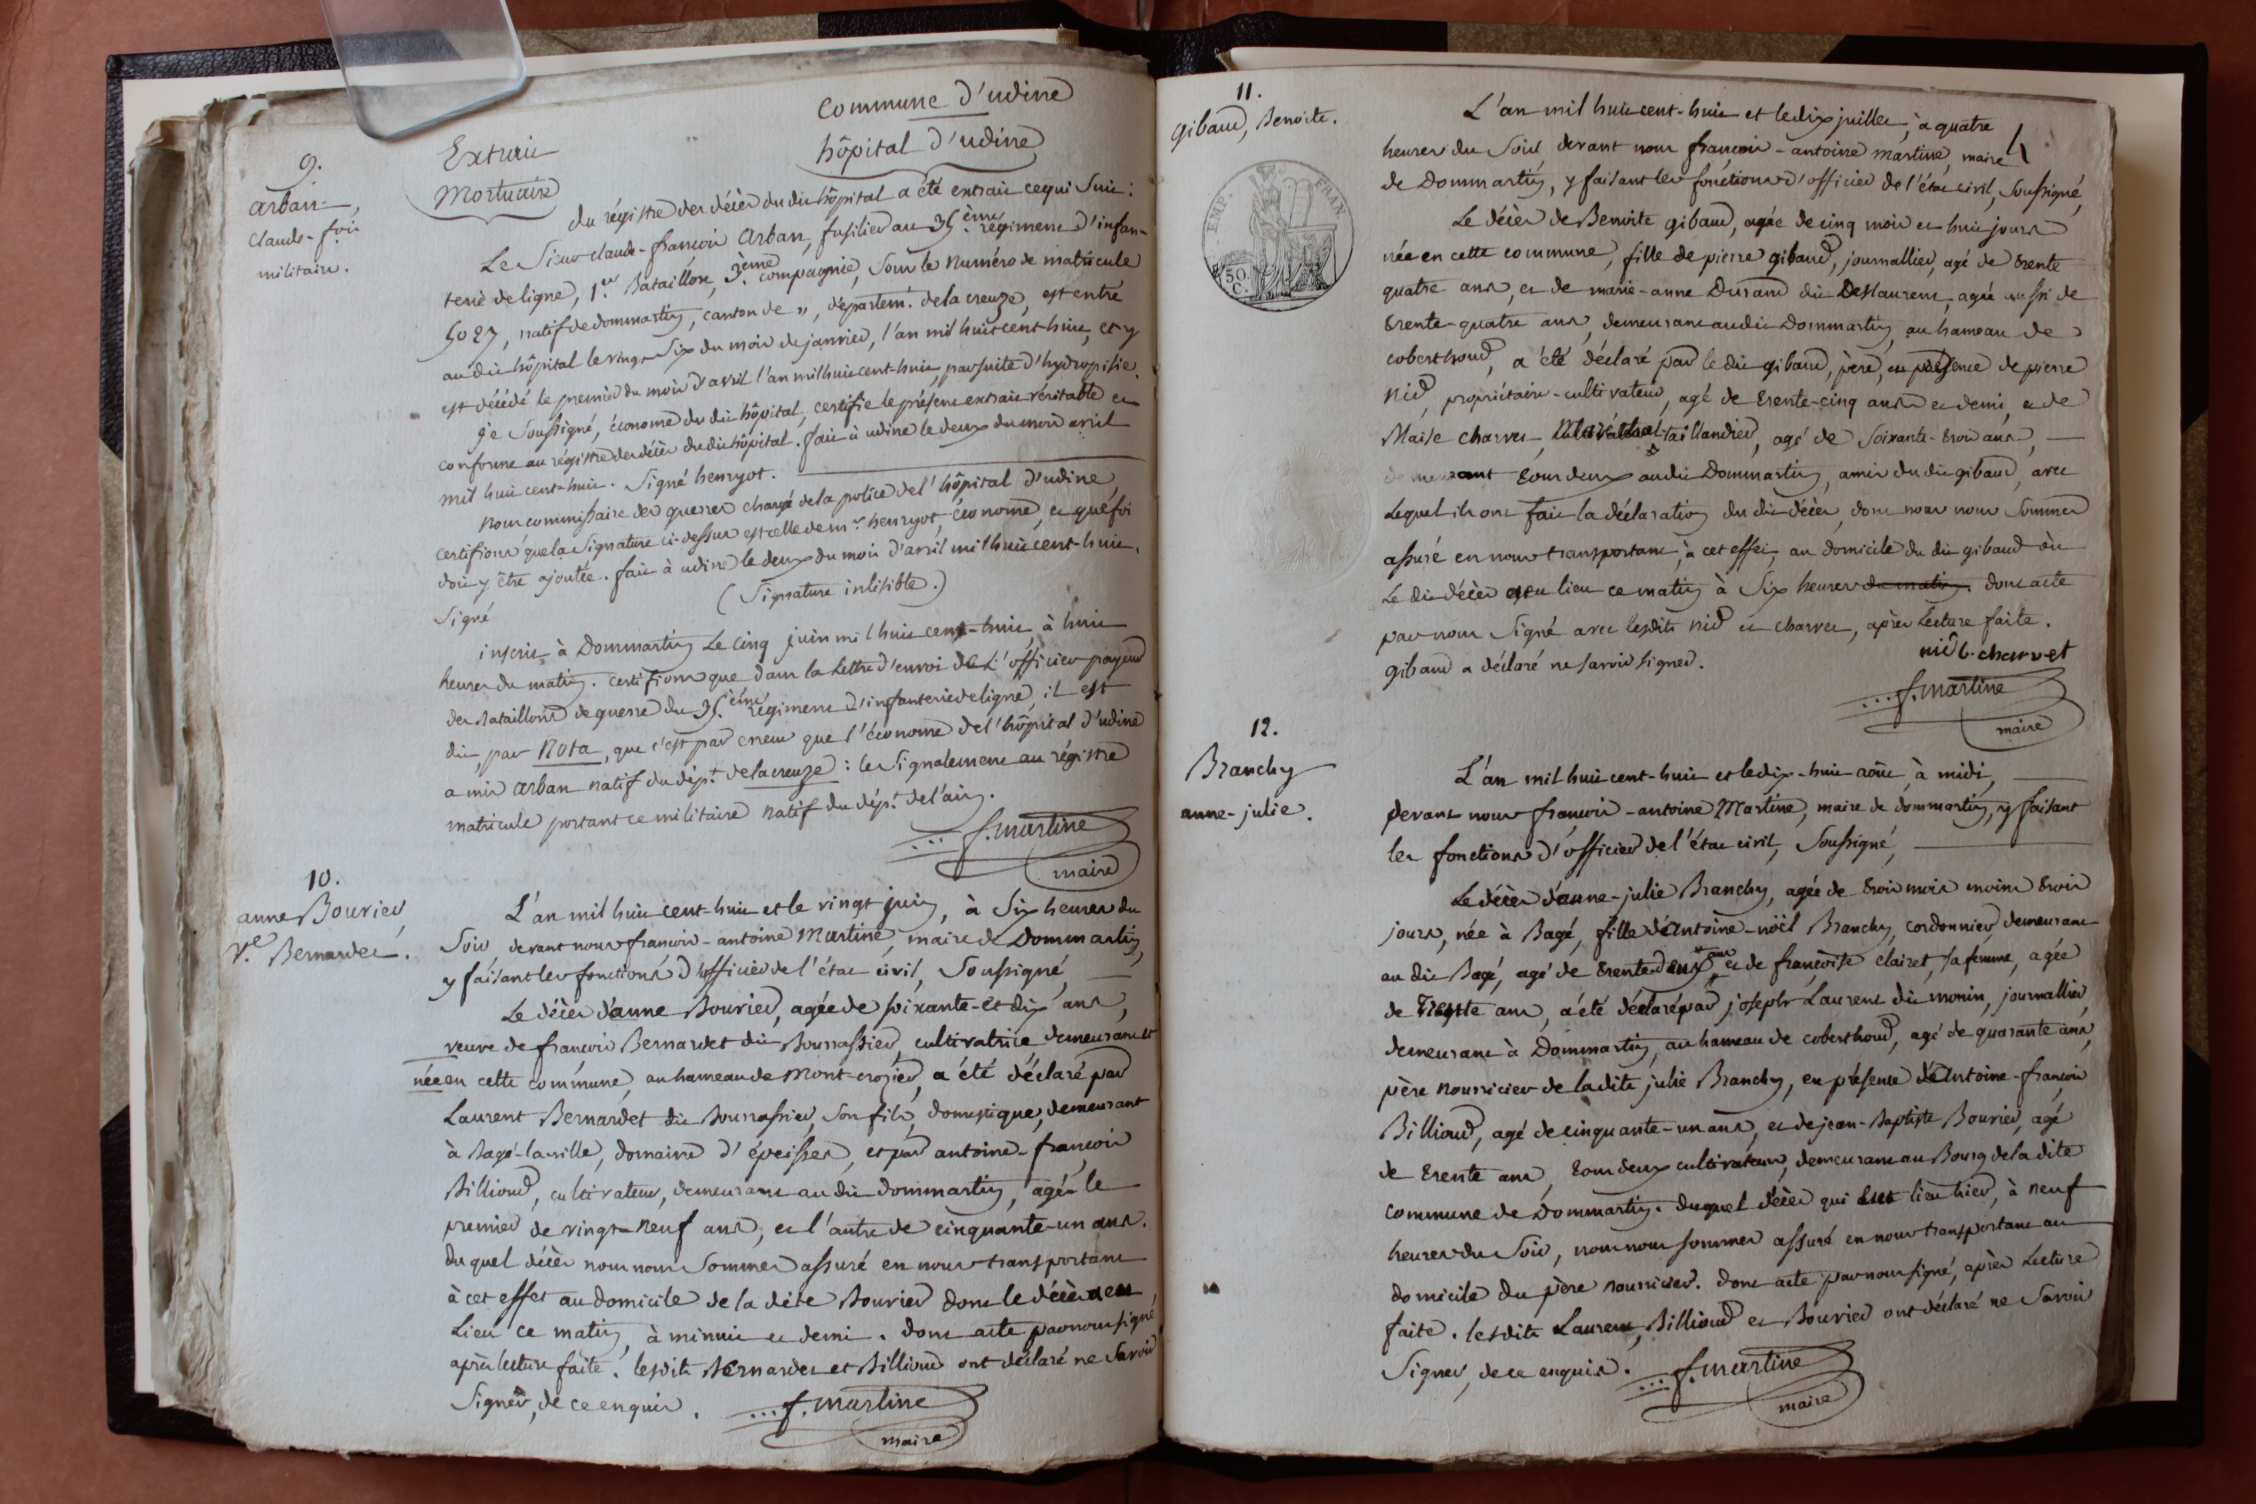 9.
arban,
claude-foi
militaire.
Extrait
Mortuaire
Commune d'udine
hôpital d'udine
du régistre des décès du dit hôpital a été extrait ce qui suit :
Le Sieur claude-françois Arban, fusilier au 35.ème régiment d'infan-
terie de ligne, 1.er Bataillon, 3.ème compagnie, sous le numéro de matricule
5027, natif de dommartin, canton de ", départem.t de la creuze, est entré
au dit hôpital le vingt Six du mois de janvier, l'an mil huit cent-huit, et y
est décédé le premier du mois d'avril l'an mil huit cent-huit, par suite d'hydropisie.
Je soussigné, économe du dit hôpital, certifie le présent extrait véritable et
conforme au régistre des décès du dit hôpital. fait à udine le deux du mois avril
mil huit cent-huit. Signé henryot.
Nous commissaire des guerres chargé de la police de l'hôpital d'udine,
certifions que la signature ci-dessus est celle de m.r henryot, économe, et que foi
doit y être ajoutée. fait à udine le deux du mois d'avril mil huit cent-huit.
Signé (Signature inlisible.)
inscrit à Dommartin Le cinq juin mil huit cent-huit, à huit
heures du matin. certifions que dans la Lettre d'envoi de L'officier payeur
des Bataillons de guerre du 35.ème régiment d'infanterie de ligne, il est
dit, par Nota, que c'est par erreur que l'économe de l'hôpital d'udine
a mis arban natif du dép.t de la creuze : le Signalement au régistre
matricule portant ce militaire natif du dép.t de l'ain.
... f. martine
maire
10.
anne Bourier,
V.e Bernardet.
L'an mil huit cent-huit et le vingt juin, à Six heures du
Soir, devant nous françois-antoine Martine, maire de Dommartin,
y faisant les fonctions d'officier de l'état civil, Soussigné,
Le décès d'anne Bourier, agée de soixante-et dix ans,
veuve de françois Bernardet dit Bourrassier, cultivatrice demeurant et
née en cette commune, au hameau de Mont-crozier, a été déclaré par
Laurent Bernardet dit Bourrassier, son fils, domestique, demeurant
à Bagé-la ville, domaine d'épeisses, et par antoine-françois
Billioud, cultivateur, demeurant au dit dommartin, agés le
premier de vingt-neuf ans, et l'autre de cinquante-un ans.
Duquel décès nous nous Sommes assuré en nous transportant
à cet effet au domicile de la dite Bourier dont le décès a eu
Lieu ce matin, à minuit et demi. dont acte par nous signé,
après lecture faite. lesdits Bernardet et Billioud ont déclaré ne Savoir
Signer, de ce enquis. ... f. martine
maire
11.
gibaud, Benoite.
EMP. FRAN.
50
C.
L'an mil huit cent-huit et le dix juillet, à quatre
heures du Soir, devant nous françois-antoine martine, maire
de Dommartin, y faisant les fonctions d'officier de l'état civil, Soussigné,
Le décès de Benoite gibaud, agée de cinq mois et huit jours
née en cette commune, fille de pierre gibaud, journallier, agé de trente
quatre ans, et de marie-anne Durand dit Deslaurent, agée aussi de
trente-quatre ans, demeurant audit Dommartin, au hameau de
coberthoud, a été déclaré par le dit gibaud, père, en présence de pierre
Nid, propriétaire-cultivateur, agé de trente-cinq ans et demi, et de
Blaise charvet, taillandier, agé de Soixante-trois ans,
demeurant tous deux au dit Dommartin, amis du dit gibaud, avec
Lequel ils ont fait la déclaration du dit décès, dont nous nous Sommes
assuré en nous transportant, à cet effet, au domicile du dit gibaud où
Le dit décès a eu lieu ce matin à Six heures du matin dont acte
par nous Signé avec lesdits nid et charvet, après Lecture faite.
gibaud a déclaré ne savoir signer.
nid b. charvet
... f. martine
maire
12.
Branchy
anne-julie.
L'an mil huit cent-huit et le dix-huit août, à midi,
devant nous françois-antoine Martine, maire de dommartin, y faisant
les fonctions d'officier de l'état civil, Soussigné,
Le décès d'anne-julie Branchy, agée de trois mois moins trois
jours, née à Bagé, fille d'antoine-noël Branchy, cordonnier, demeurant
au dit Bagé, agé de trente deux ans et de françoise clairet, sa femme, agée
de Trente ans, a été déclaré par joseph Laurent dit monin, journallier,
demeurant à Dommartin, au hameau de coberthoud, agé de quarante ans,
père nourricier de ladite julie Branchy, en présence d'antoine-françois
Billioud, agé de cinquante-un ans, et de jean-Baptiste Bourier, agé
de trente ans, tous deux cultivateurs, demeurant au Bourg de la dite
commune de Dommartin. duquel décès qui eut lieu hier, à neuf
heures du Soir, nous nous sommes assuré en nous transportant au
domicile du père nourricier. dont acte par nous signé, après Lecture
faite. lesdits Laurent, Billioud et Bourier ont déclaré ne Savoir
Signer, de ce enquis. ... f. martine
maire